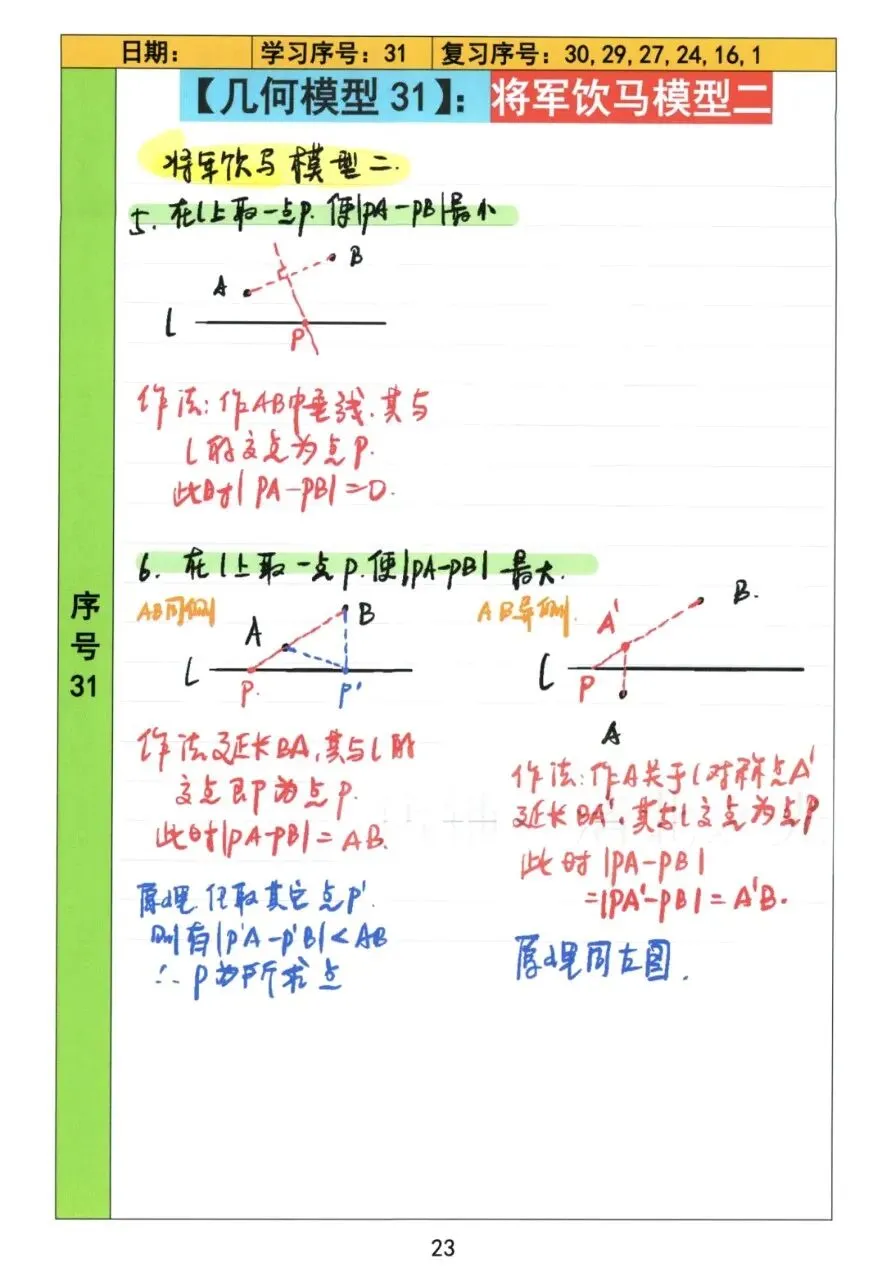 日期:
学习序号:31
复习序号:30,29,27,24,16,1
【几何模型 31】:将军饮马模型二
序号31
将军饮马模型二.
5. 在l上取一点P.使|PA-PB|最小
B
A
l
P
作法:作AB中垂线.其与
l的交点为点P.
此时|PA-PB|=0.
6. 在l上取一点P.使|PA-PB|最大.
AB同侧
A
B
l
P.
P'
AB异侧.
A'
B.
l
P
A
作法延长BA,其与l的
交点即P为点P.
此时|PA-PB|=AB.
原理任取其它点P'.
则有|P'A-P'B|<AB
∴P为所求点
作法:作A关于l对称点A'
延长BA',其与l交点为点P
此时|PA-PB|
=|PA'-PB|=A'B.
原理同左图.
23